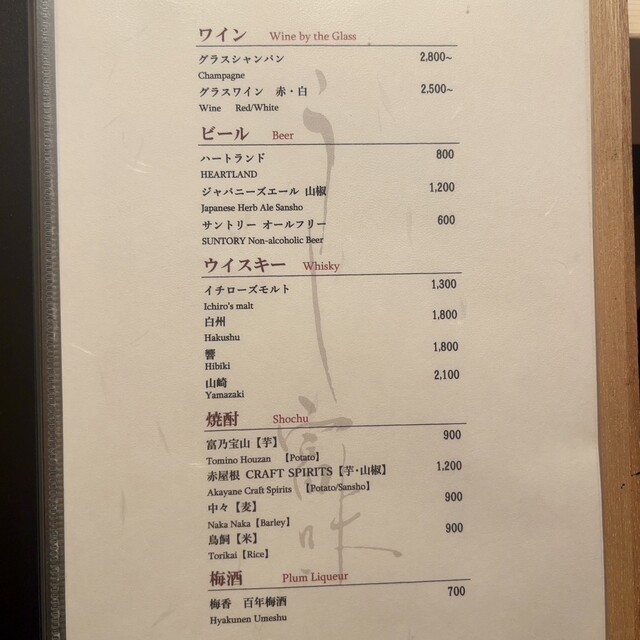 ワイン Wine by the Glass
グラスシャンパン 2,800~
Champagne
グラスワイン 赤・白 2,500~
Wine Red/White
ビール Beer
ハートランド 800
HEARTLAND
ジャパニーズエール 山椒 1,200
Japanese Herb Ale Sansho
サントリー オールフリー 600
SUNTORY Non-alcoholic Beer
ウイスキー Whisky
イチローズモルト 1,300
Ichiro's malt
白州 1,800
Hakushu
響 1,800
Hibiki
山崎 2,100
Yamazaki
焼酎 Shochu
富乃宝山【芋】 900
Tomino Houzan 【Potato】
赤屋根 CRAFT SPIRITS【芋・山椒】 1,200
Akayane Craft Spirits 【Potato/Sansho】
中々【麦】 900
Naka Naka【Barley】
鳥飼【米】 900
Torikai【Rice】
梅酒 Plum Liqueur
梅香 百年梅酒 700
Hyakunen Umeshu